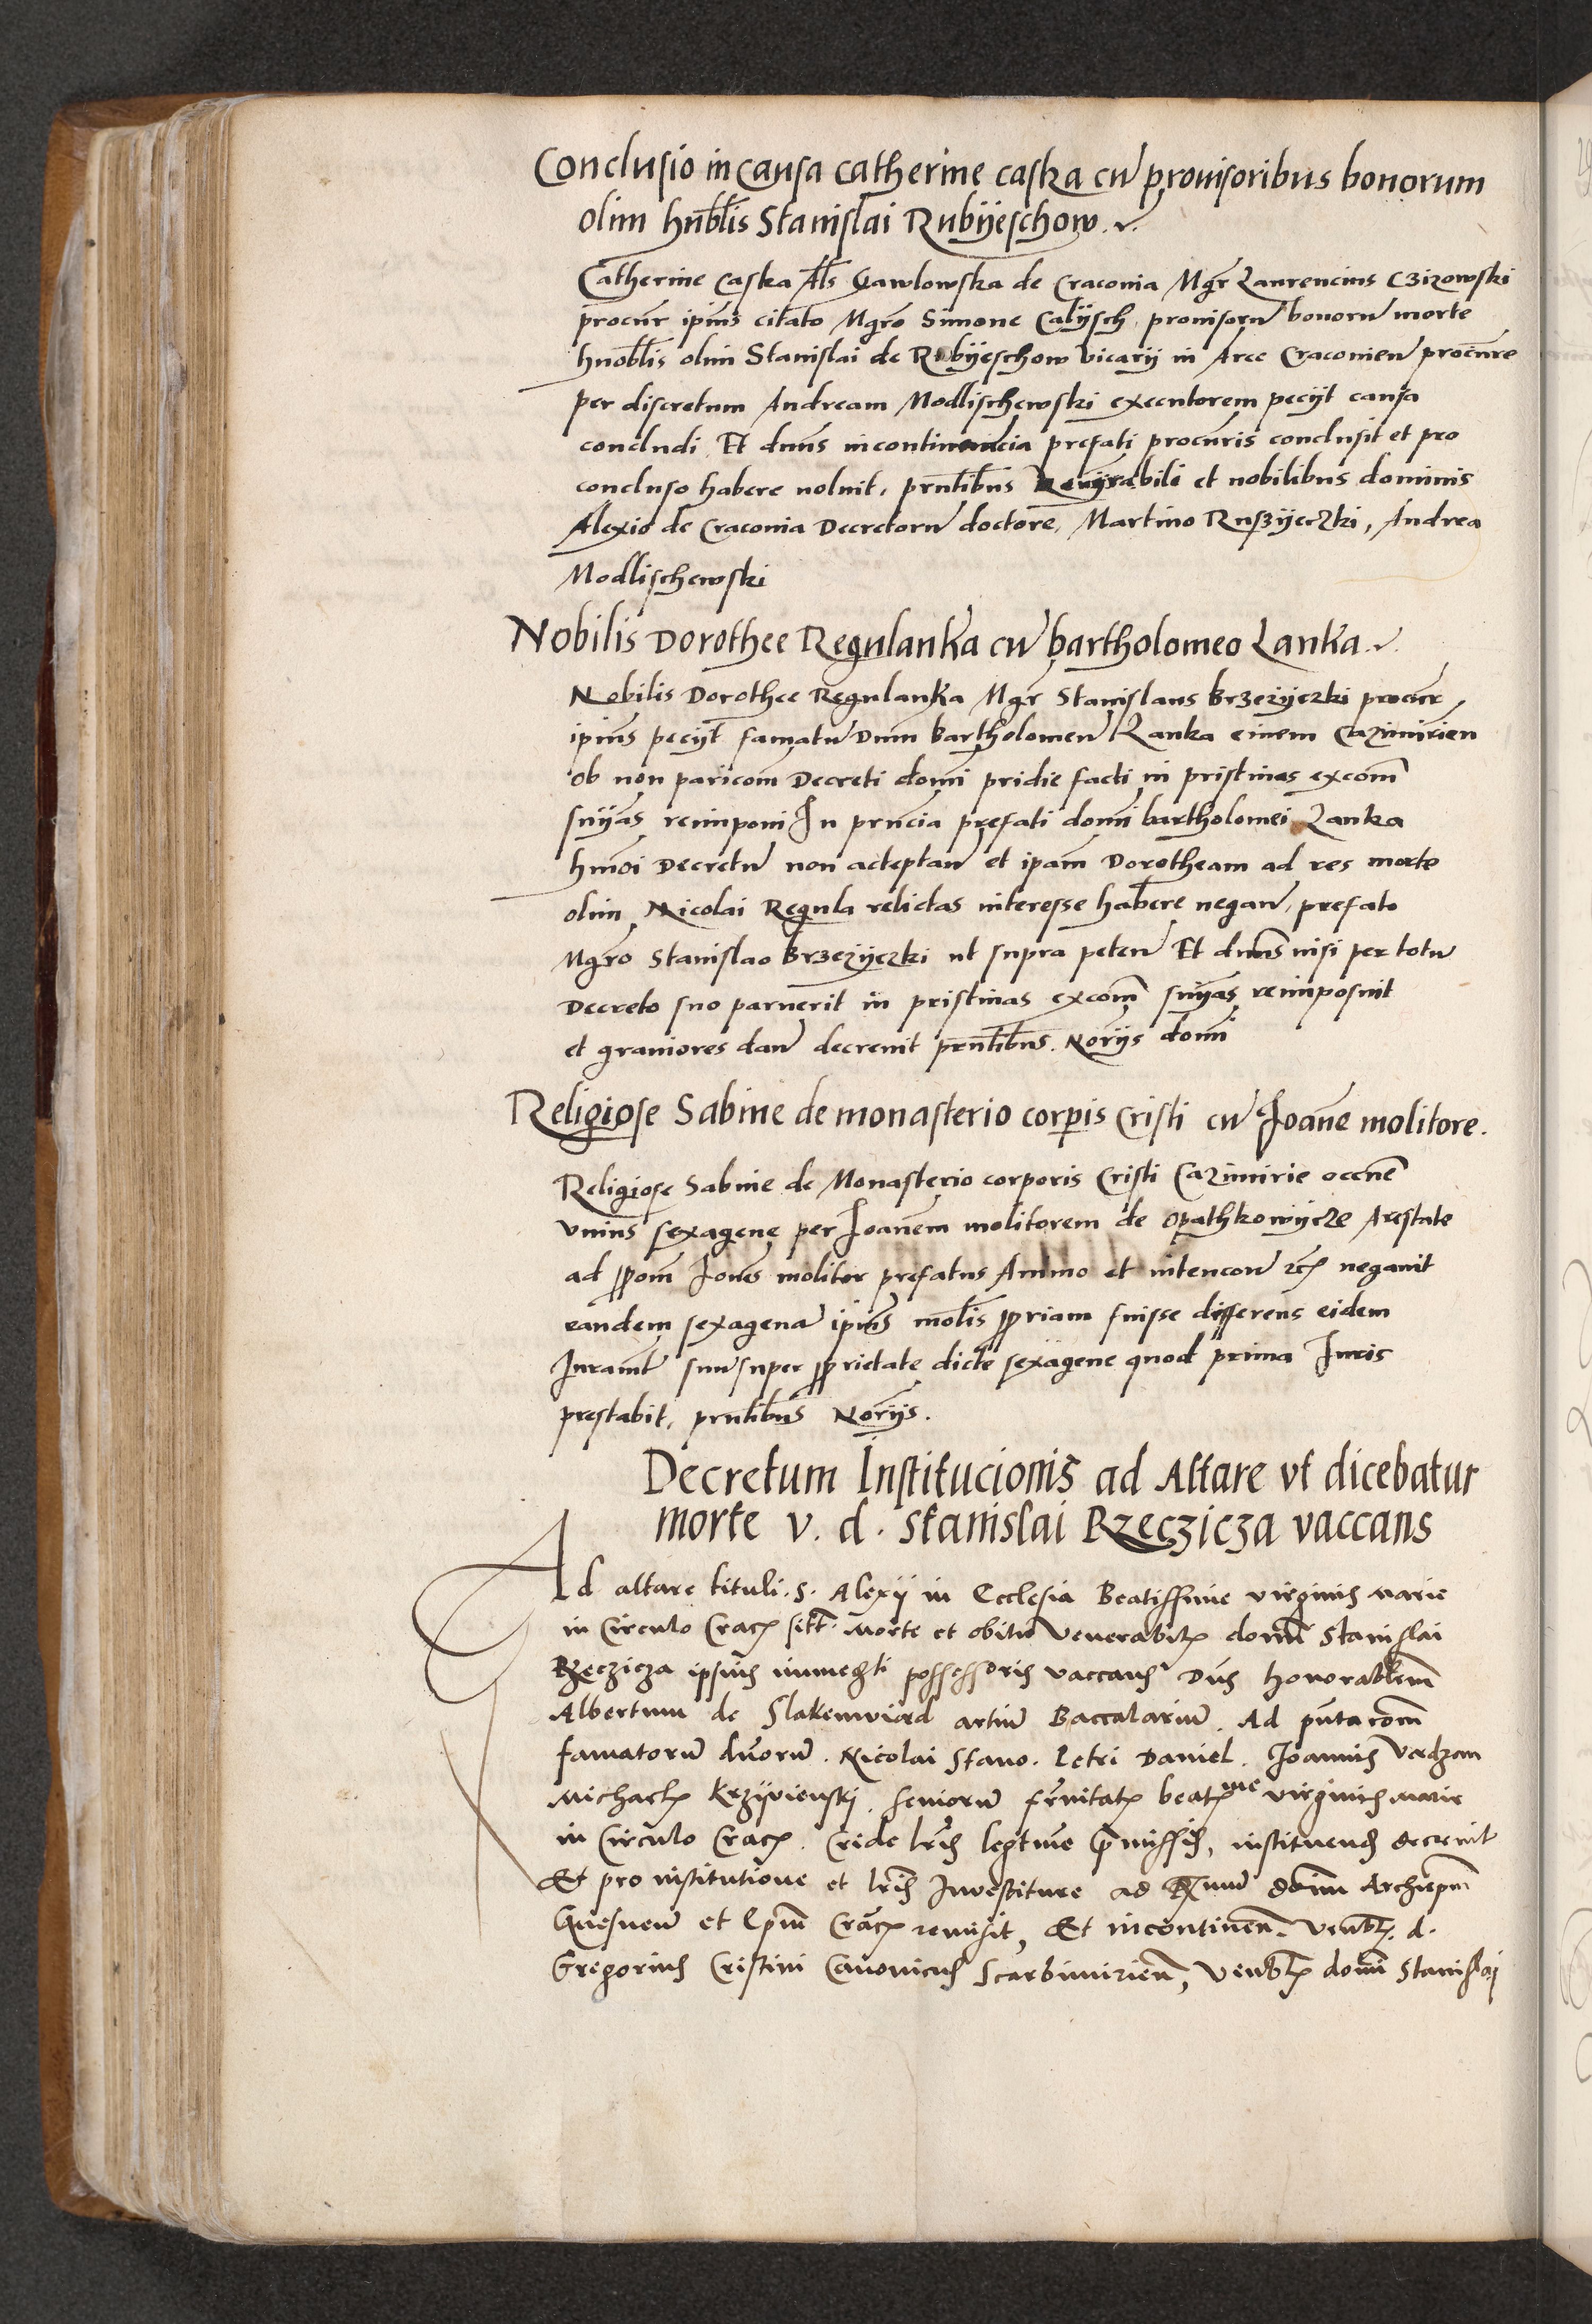 Conclusio in Causa Catherine Caska cū prouisoribus bonorum
olim hn̄blis Stanislai Rubÿeschow
Catherine Caska Als Gawlowska de Craconia Mgr̄ Laurencius Czirowski
procur̄ ipīus citato Mgrō Simone Calÿsch prouisorū bonorū morte
hnoblis olim Stanislai de Rubÿeschow vicarÿ in Arce Craconien̄ procure
per discretum Andream Modlischewski executorem pecÿt causā
concludi Et dnūs in prefati procūris conclusit et pro
concluso habere voluit, prn̄tibus Venÿrabili et nobilibus dominis
Alexio de Craconia Decretorū doctore, Martino Ruszÿeczki, Andrea
Modlischewski
Nobilis Dorothee Regulanka cū bartholomeo Lanka
Nobilis Dorothee Regulanka Mgr̄ Stanislaus Brzezÿczki procur̄
ipīus pecÿt famatū Dnm̄ bartholomeū Lanka ciuem Cazimirien̄
ob non paricom̄ Decreti domī pridie facti in pristinas excom̄
snÿas reimponi In prn̄cia prefati domī bartholomei Lanka
hm̄oi Decretū non acceptan̄ et ipam̄ Dorotheam ad res morte
olim Nicolai Regula relictas interesse habere negan̄, prefato
Mgrō Stanislao Brzezÿczki ut supra peten̄ Et dnūs nisi per totū
Decreto suo paruerit in pristinas excom̄ snÿas reimposuit
et grauiores dan̄ decreuit prn̄tibus Norÿs domī
Religiose Sabine de monasterio corpis Cristi cū Joāne molitore.
Religiose Sabine de Monasterio corporis Cristi Cazimirie occn̄e
vnius sexagene per Joanēm molitorem de opathkowÿcze Arestate
ad ꝓom̄ Joīies molitor prefatus Animo et intencon̄ negauit
eandem sexagenā ipīus molis ꝓpriam fuisse differens eidem
Juramt̄ suū super ꝓprietate dicte sexagene quod prima Juris
prestabit, prn̄tibus Norÿs.
Decretum Institucionis ad Altare vt dicebatur
morte v. d. Stanislai Rzeczicza vaccans
Ad altare tituli S. Alexÿ in Ecclesia Beatissime virginis Marie
in Circulo Crac̄ sitt̄ Morte et obitu Venerabilꝭ domī Stanislai
Rzeczicza ipsius immedti possessoris vaccans Dnūs honorablem̄
Albertum de artiū Baccalariū. Ad pn̄tacom̄
famatorū dnorū. Nicolai Stano. Petri Daniel. Joannis
Michaelꝭ Krzÿvienskj. Seniorū frn̄itatꝭ beatꝭme virginis Marie
in Circulo Crac̄. Cride lrīs legtime p̄missis, instituend̄ decreuit
Et pro institutione et lrīs Inuestiture ad R̄ nūm domī Archiepm̄
Gnesnen̄ et Epm̄ Crac̄ remisit, Et incontinen̄. Venblꝭ d.
Gregorius Cristini Canonicus Scarbimirien̄, Venblꝭ domī Stanislaj